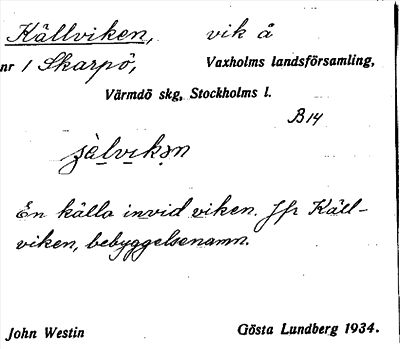 Källviken, vik å
nr 1 Skarpö, Vaxholms landsförsamling,
Värmdö skg, Stockholms l.
B14
En källa invid viken. Jfr Käll-
viken, bebyggelsenamn.
John Westin Gösta Lundberg 1934.